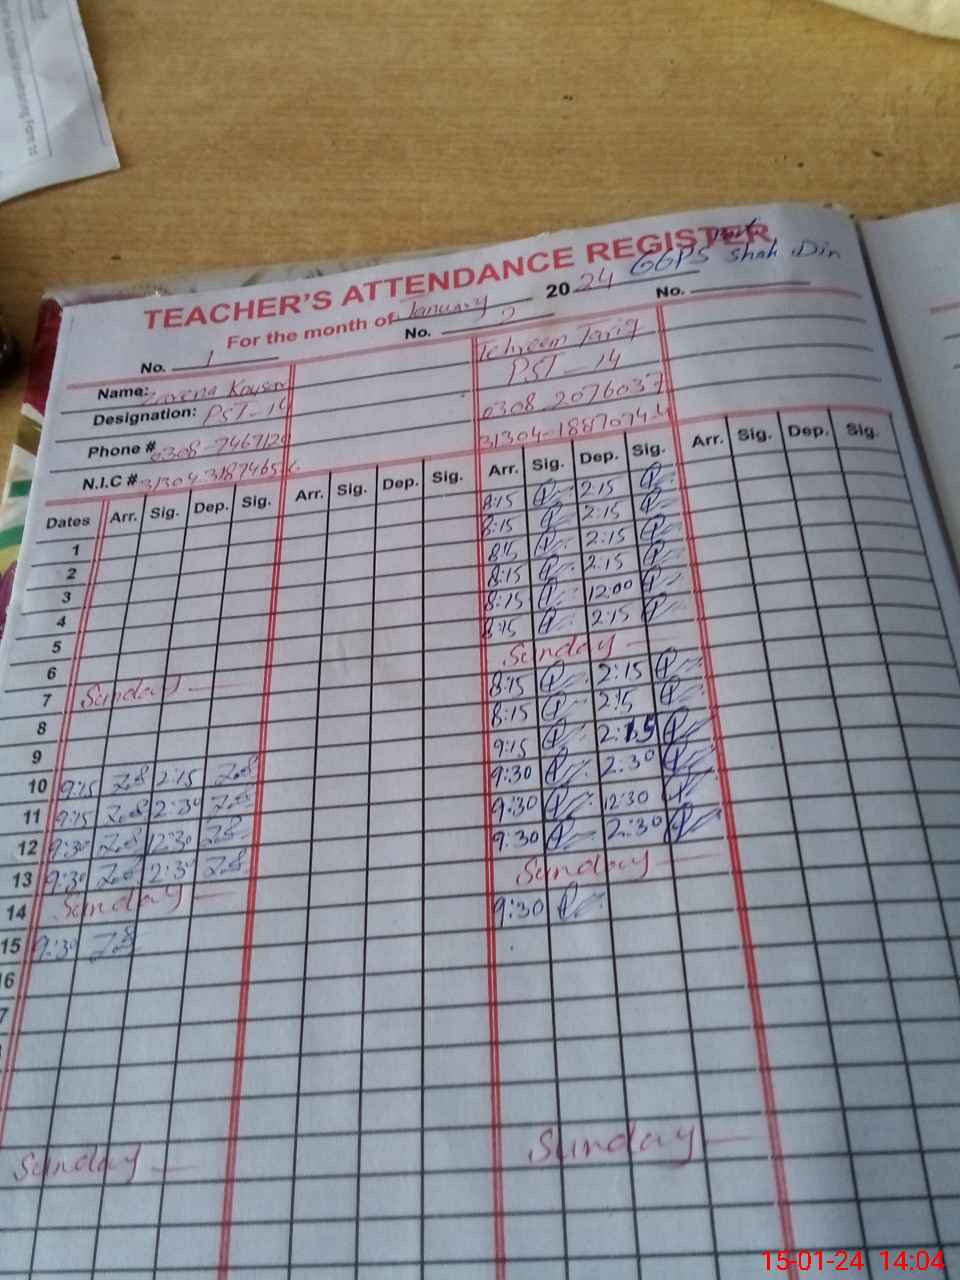 TEACHER'S ATTENDANCE REGISTER
GGPS Shah Din
For the month of January 2024
No. 1 No. 2 No.
Name: Zareena Kousar Tehreem Tariq
Designation: PST-14 PST-14
Phone # 0308-7467120 0308-2076037
N.I.C #
Dates Arr. Sig. Dep. Sig. Arr. Sig. Dep. Sig. Arr. Sig. Dep. Sig. Arr. Sig. Dep. Sig.
1 8:15 2:15
2 8:15 2:15
3 8:15 2:15
4 8:15 2:15
5 8:15 12:00
6 8:15 2:15
7 Sunday — Sunday —
8 8:15 2:15
9 8:15 2:15
10 9:15 2:15 9:15 2:15
11 9:15 2:30 9:30 2:30
12 9:30 12:30 9:30 12:30
13 9:30 2:30 9:30 2:30
14 Sunday — Sunday —
15 9:30 9:30
16
7
Sunday — Sunday —
15-01-24 14:04